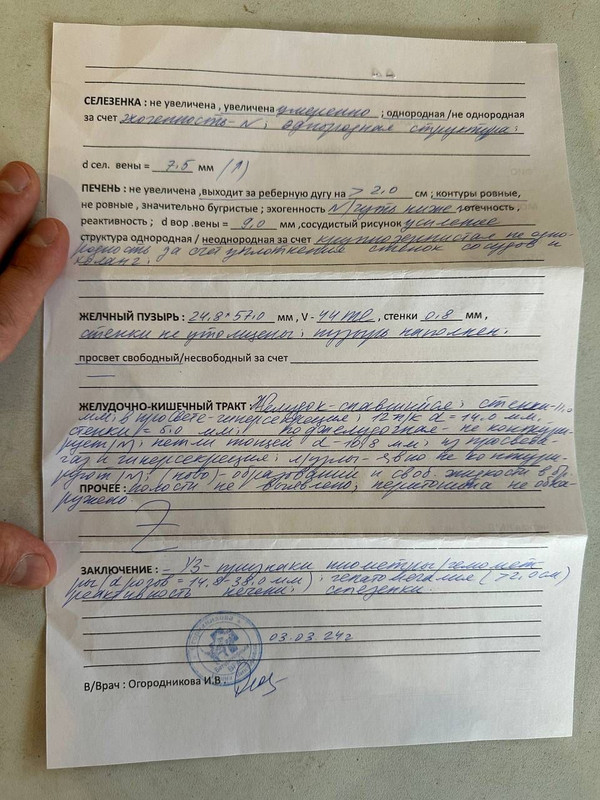 СЕЛЕЗЕНКА : не увеличена , увеличена умеренно ; однородная /не однородная
за счет эхогенность- N ; однородная структура ;
d сел. вены = 7,5 мм (N)
ПЕЧЕНЬ : не увеличена ,выходит за реберную дугу на > 2,0 см ; контуры ровные,
не ровные , значительно бугристые ; эхогенность N/чуть ниже ,отечность ,
реактивность ; d вор .вены = 9,0 мм ,сосудистый рисунок усиление
структура однородная / неоднородная за счет крупнозернистая не одно-
родность за счет уплотнения стенок сосудов и
холанг.
ЖЕЛЧНЫЙ ПУЗЫРЬ : 24,8*57,0 мм , V - 44 ml , стенки 0,8 мм ,
стенки не утолщены ; пузырь наполнен.
просвет свободный/несвободный за счет
—
ЖЕЛУДОЧНО-КИШЕЧНЫЙ ТРАКТ : Желудок-спавшийся ; стенки-11,0
мм; в просвете-гиперсекреция ; 12 п/к d = 14,0 мм,
стенки = 5,0 мм ; поджелудочная - не контури-
рует/N ; петли тощей d - 10/8 мм ; из просвета-
газ и гиперсекреция ; м/узлы- явно не контури-
руют /N/ ; ново)- образований и своб. жидкости в бр.
ПРОЧЕЕ : полости не выявлено ; перитонита не обна-
ружено
ЗАКЛЮЧЕНИЕ : - УЗ- признаки пиометры/гемомет
ры/d рогов = 14,8-38,0 мм) ; гепатомегалия ( >2,0 см)
реактивность печени ; селезенки.
03.03.24г
В/Врач : Огородникова И.В .